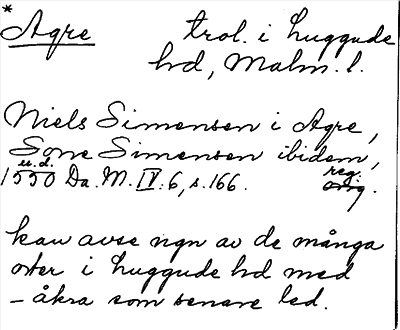 *
Agre trol. i Luggude
hd, Malm. l.
Niels Simensen i Agre,
Sone Simensen ibidem,
u.d. reg.
1550 Da. M. IV: 6, s. 166. orig.
kan avse ngn av de många
orter i Luggude hd med
- åkra som senare led.